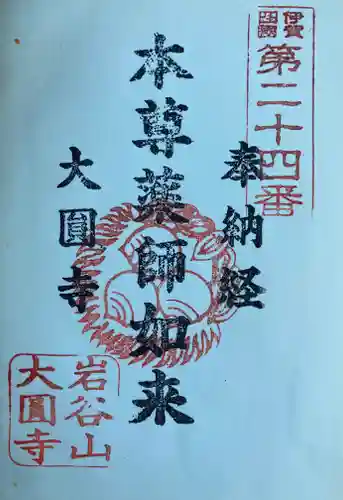 伊賀
四國
第二十四番
奉納経
本尊薬師如来
大圓寺
岩谷山
大圓寺